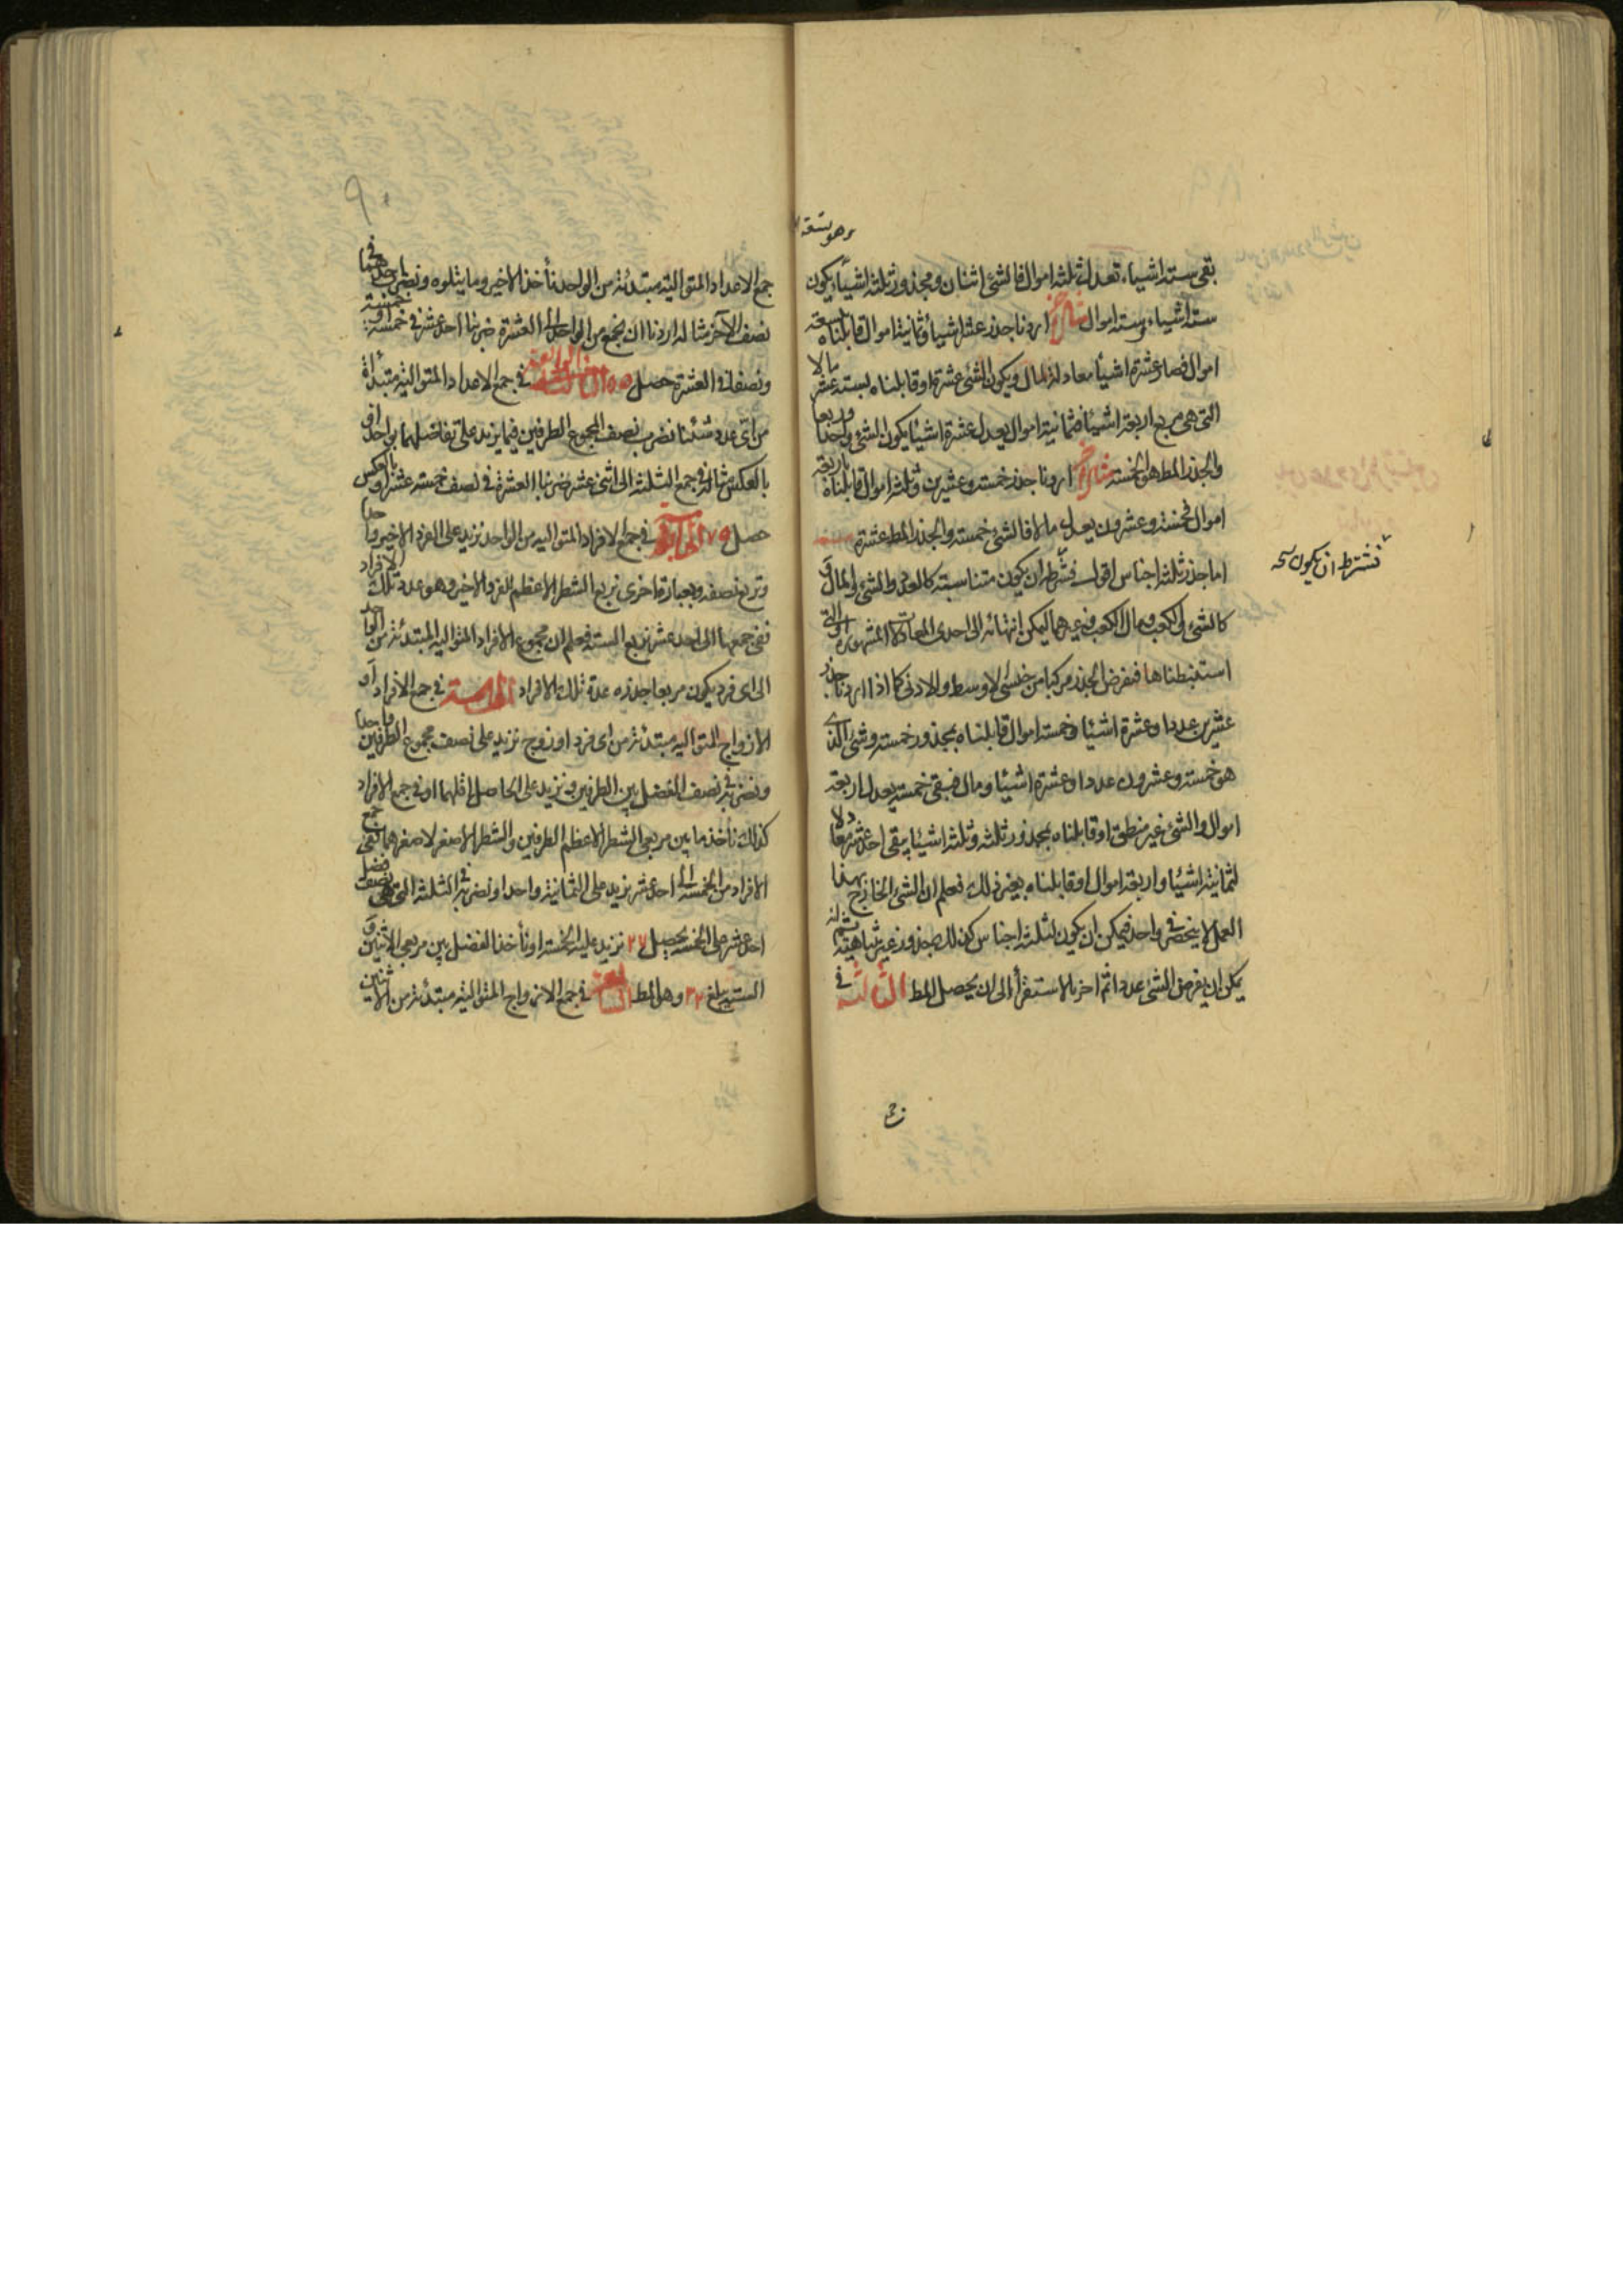 وهو تسعة
بقى ستة اشياء تعدل ثلثة اموال فالشئ اثنان ومجذور ثلثة اشيياء يكون
ستة اشياء وستة اموال اردنا جذر عشر اشيياء وثمانية اموال قابلناه بتسعة
اموال فصار عشرة اشيئا معادلة لمال ويكون الشئ عشرة او قابلناه بستة عشر مالا
التى هى مربع اربعة اشيئا فثمانية اموال يعدل عشرة اشيئا يكون الشئ واحدا وربعا
والجذر المط هو الخمسة مثال اخر اردنا جذر خمسة وعشرين وثلثة اموال قابلناه باربعة
اموال فخمسة وعشرون يعدل مالا فالشئ خمسة والجذر المط عشرة
اما جذر ثلثة اجناس اقول فشرط ان يكون متناسبة كالعدد والشئ والمال و
فنشترط ان يكون
كالشئ والكعب ومال الكعب وغيرهما ليكن انتهائه الى احدى المعادلات المشهورة والتى
استنبطناها فنفرض الجذر مركبا من جنسى الاوسط والادنى كما اذا اردنا جذر
عشرين عددا وعشرة اشيئا وخمسة اموال قابلناه بمجذور خمسة وشئ الذى
هو خمسة وعشرون عددا وعشرة اشيئا ومال فبقى خمسة يعدل اربعة
اموال والشئ غير منطق او قابلناه بمجذور ثلثة وثلثة اشيئا يبقى احد عشر معادلا
لثمانية اشيئا واربعة اموال او قابلناه بغير ذلك فعلم ان الشئ الخارج بهذا
العمل لا ينحصر فى واحد فيمكن ان يكون لثلثة اجناس كذلك جذور غير متناهية
يمكن ان يفرض الشئ عددا ثم اخر بالاستقرأ الى ان يحصل المط الثالثة فى
٩٠
جمع الاعداد المتوالية مبتدئة من الواحد نأخذ الاخير وما يتلوه ونضرب احدهما فى
نصف الآخر مثاله اردنا ان نجمع من الواحد الى العشرة ضربنا احد عشر فى خمسة او خمسة
ونصفا فى العشرة حصل ٥٥ الرابعة فى جمع الاعداد المتوالية مبتدأة
من اى عدد شئنا نضرب نصف المجموع الطرفين فيما يزيد على تفاضلهما بواحد او
بالعكس مثاله فى جمع الثلثة الى اثنى عشر ضربنا العشرة فى نصف خمسة عشر او بالعكس
حصل ٧٥ الخامسة فى جمع الافراد المتوالية من الواحد نزيد على الفرد الاخير واحدا
ونربع نصفه وبعبارة اخرى نربع الشطر الاعظم للفرد الاخير وهو عدد تلك الافراد
ففى جمعها الى احد عشر نربع الستة فعلم ان مجموع الافراد المتوالية المبتدئة من الواحد
الى اى فرد يكون مربعا جذره عدة تلك الافراد السادسة فى جمع الافراد او
الازواج المتوالية مبتدئة من اى فرد او زوج نزيد على نصف مجموع الطرفين واحدا
ونضربه فى نصف الفضل بين الطرفين ونزيد على الحاصل اقلهما او فى جمع الافراد
كذلك نأخذ ما بين مربعى الشطر الاعظم الطرفين والشطر الاصغر لاصغرهما ففى جمع
الافراد من الخمسة الى احد عشر نزيد على الثمانية واحدا ونضربه فى الثلثة التى هى نصف فضل
احد عشر على الخمسة يحصل ٢٧ نزيد عليه الخمسة او نأخذ الفضل بين مربعى الاثنين و
الستة يبلغ ٣٢ وهو المط السابعة فى جمع الازواج المتوالية مبتدئة من الاثنين